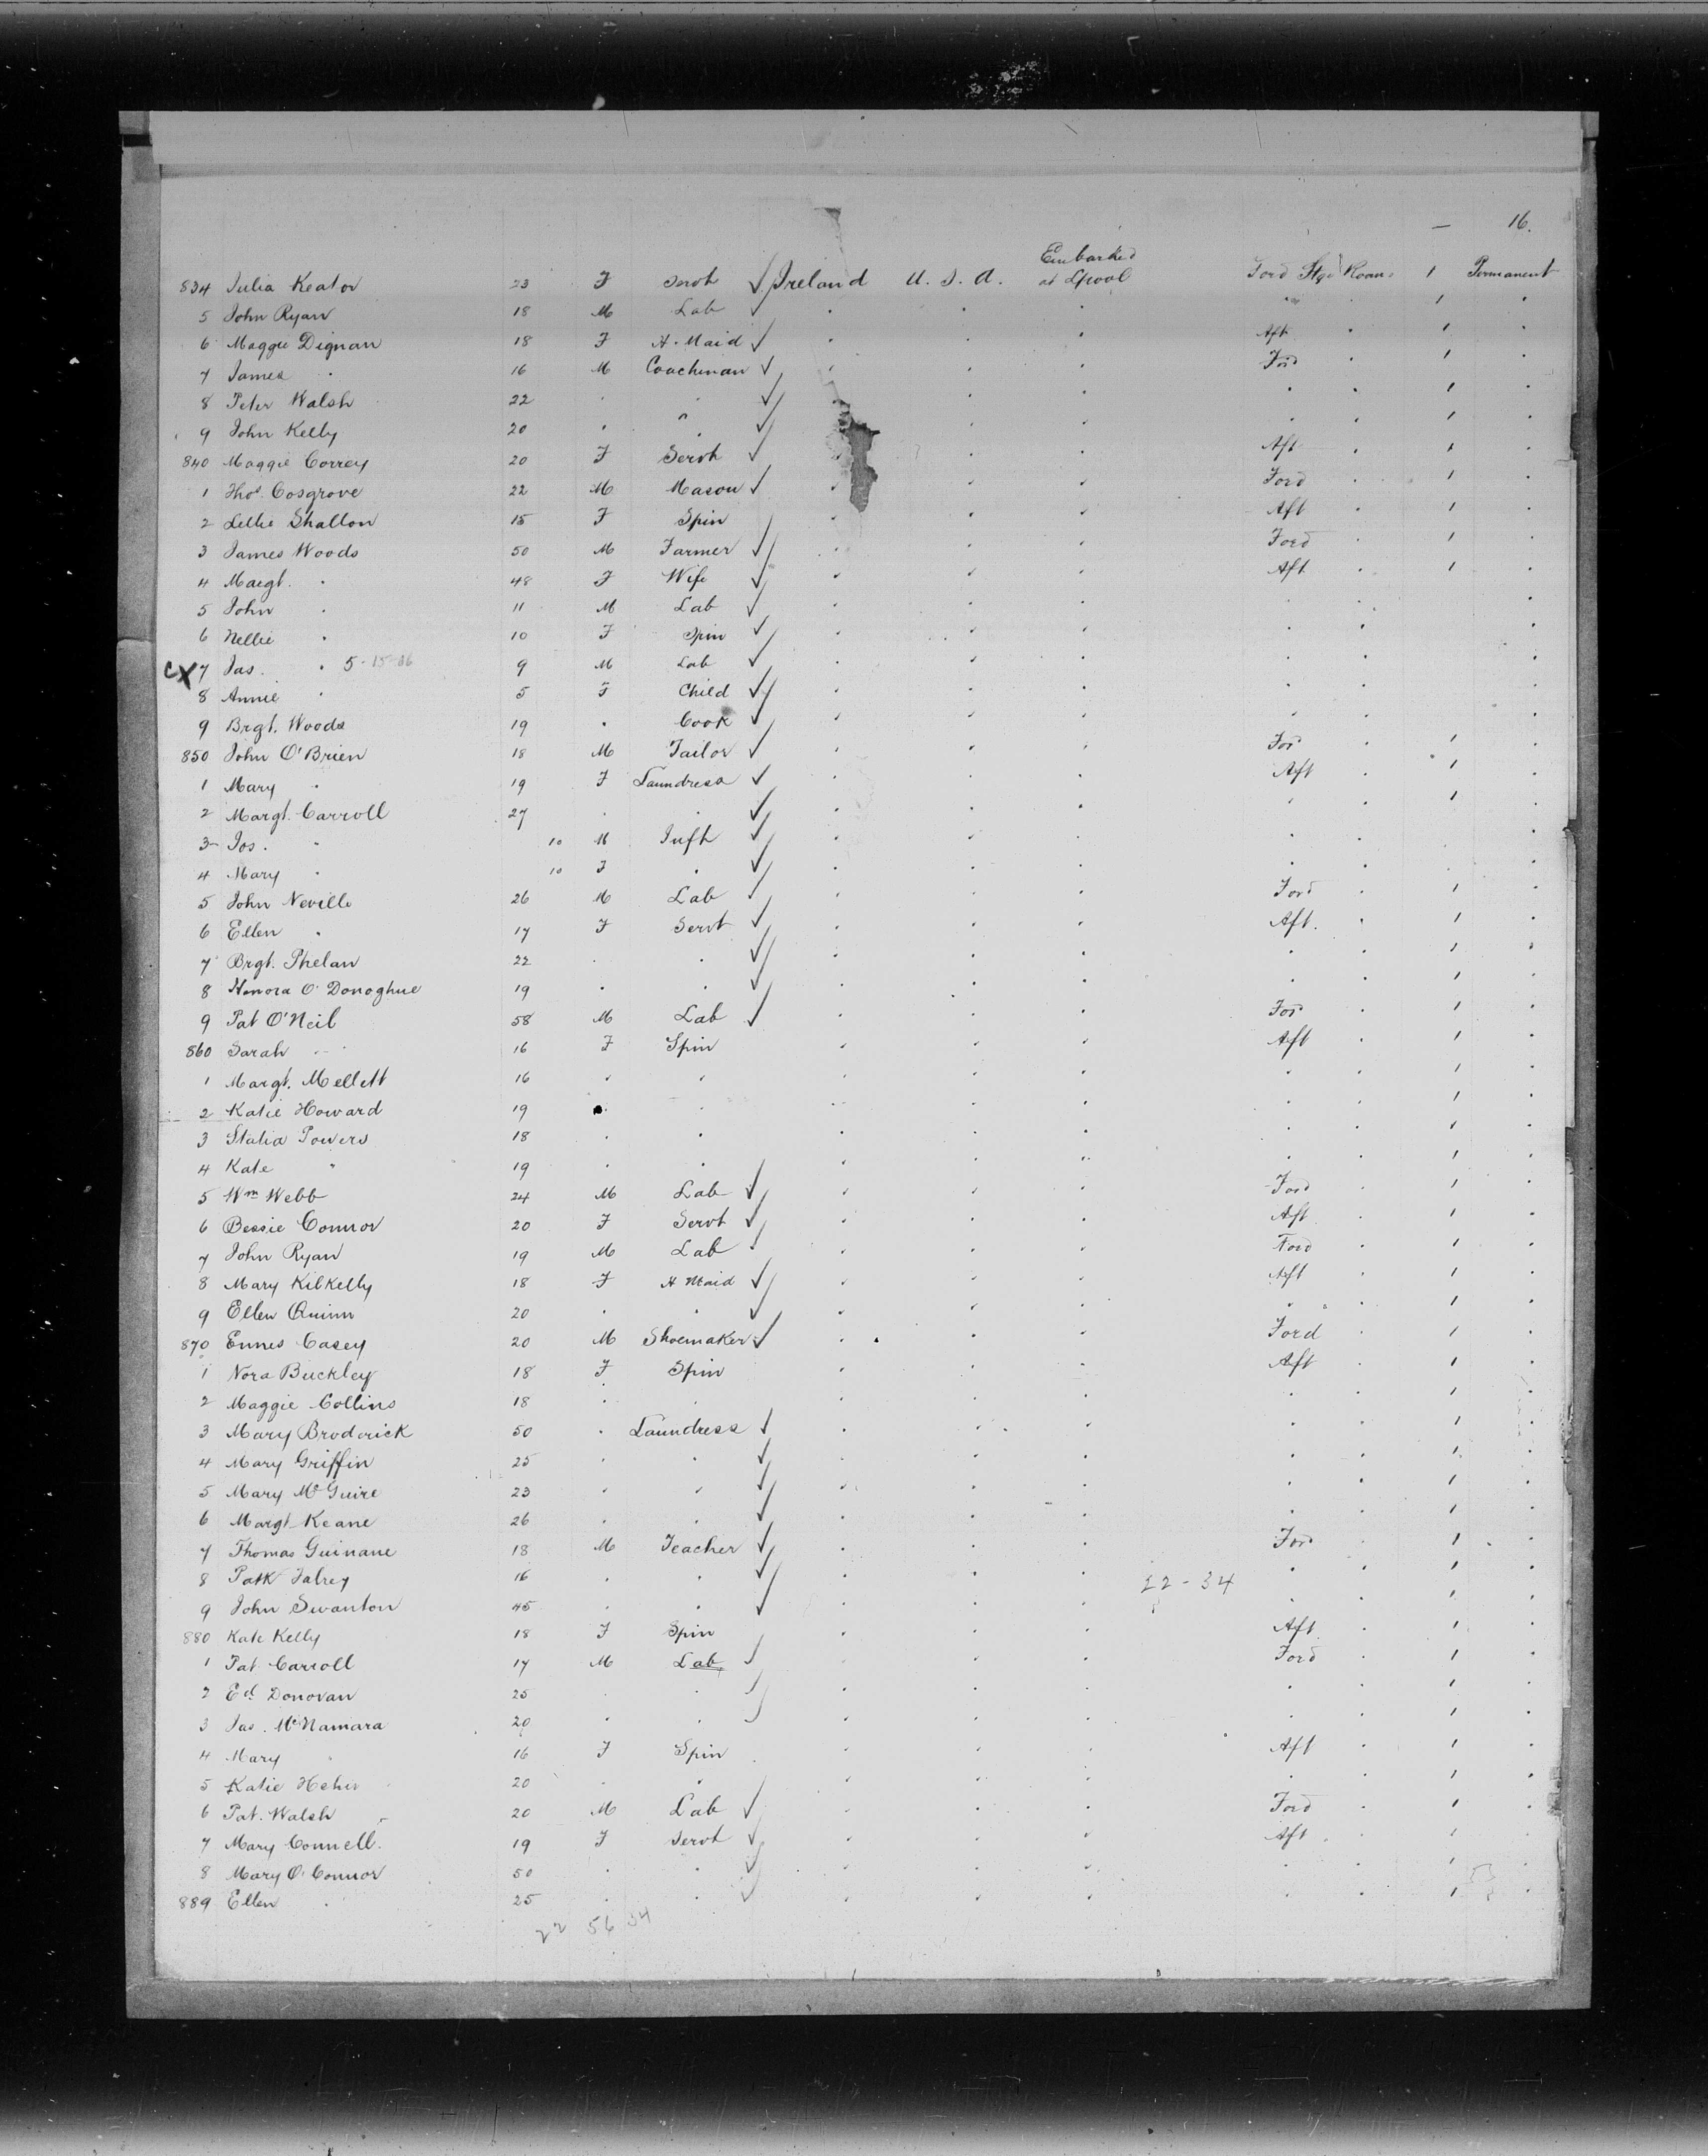 — 16.
Embarked
834 Julia Keator 23 F Servt ✓ Ireland U. S. A. at Lpool Ford Stge 1 Permanent
5 John Ryan 18 M Lab ✓ " " " " " 1 "
6 Maggie Dignan 18 F H. Maid ✓ " " " Aft " 1 "
7 James " 16 M Coachman ✓ " " " Ford " 1 "
8 Peter Walsh 22 " " ✓ " " " " 1 "
9 John Kelly 20 " " ✓ " " " " 1 "
840 Maggie Correy 20 F Servt ✓ " " " Aft " 1 "
1 Thos. Cosgrove 22 M Mason ✓ " " " Ford " 1 "
2 Lellie Shallon 15 F Spin " " " Aft " 1 "
3 James Woods 50 M Farmer ✓ " " " Ford " 1 "
4 Margt. " 48 F Wife ✓ " " " Aft " 1 "
5 John " 11 M Lab ✓ " " " " " "
6 Nellie " 10 F Spin ✓ " " " " " "
cx 7 Jas. " 5-15-06 9 M Lab ✓ " " " " " "
8 Annie " 5 F Child ✓ " " " " " "
9 Brgt. Woods 19 " Cook ✓ " " " " " "
850 John O'Brien 18 M Tailor ✓ " " " For " 1 "
1 Mary " 19 F Laundress ✓ " " " Aft " 1 "
2 Margt. Carroll 27 " " ✓ " " " " " 1 "
3 Jos. " 10 M Inft ✓ " " " " " "
4 Mary " 10 F " ✓ " " " " " "
5 John Neville 26 M Lab ✓ " " " Ford " 1 "
6 Ellen " 17 F Servt ✓ " " " Aft. " 1 "
7 Brgt. Phelan 22 " " ✓ " " " " " 1 "
8 Honora O'Donoghue 19 " " ✓ " " " " " 1 "
9 Pat O'Neil 58 M Lab ✓ " " " For " 1 "
860 Sarah " 16 F Spin " " " Aft " 1 "
1 Margt. Mellett 16 " " " " " " " 1 "
2 Katie Howard 19 " " " " " " " 1 "
3 Statia Powers 18 " " " " " " " 1 "
4 Kate " 19 " " " " " " " 1 "
5 Wm Webb 24 M Lab ✓ " " " Ford " 1 "
6 Bessie Connor 20 F Servt ✓ " " " Aft " 1 "
7 John Ryan 19 M Lab ✓ " " " Ford " 1 "
8 Mary Kilkelly 18 F H Maid ✓ " " " Aft " 1 "
9 Ellen Quinn 20 " " ✓ " " " " " 1 "
870 Ennes Casey 20 M Shoemaker ✓ " " " Ford " 1 "
1 Nora Buckley 18 F Spin " " " Aft " 1 "
2 Maggie Collins 18 " " " " " " " 1 "
3 Mary Broderick 50 " Laundress ✓ " " " " " 1 "
4 Mary Griffin 25 " " ✓ " " " " " 1 "
5 Mary McGuire 23 " " ✓ " " " " " 1 "
6 Margt Keane 26 " " ✓ " " " " " 1 "
7 Thomas Guinane 18 M Teacher ✓ " " " Ford " 1 "
8 Patk Falvey 16 " " ✓ " " " 22-34 " " 1 "
9 John Swanton 45 " " ✓ " " " " " 1 "
880 Kate Kelly 18 F Spin " " " Aft " 1 "
1 Pat Carroll 17 M Lab ✓ " " " Ford " 1 "
2 Ed. Donovan 25 " " ✓ " " " " " 1 "
3 Jas. McNamara 20 " " ✓ " " " " " 1 "
4 Mary " 16 F Spin " " " Aft " 1 "
5 Katie Hehir 20 " " " " " " " 1 "
6 Pat. Walsh 20 M Lab ✓ " " " Ford " 1 "
7 Mary Connell. 19 F Servt ✓ " " " Aft " 1 "
8 Mary O'Connor 50 " " ✓ " " " " " 1 "
889 Ellen " 25 " " ✓ " " " " " 1 "
22 56 34